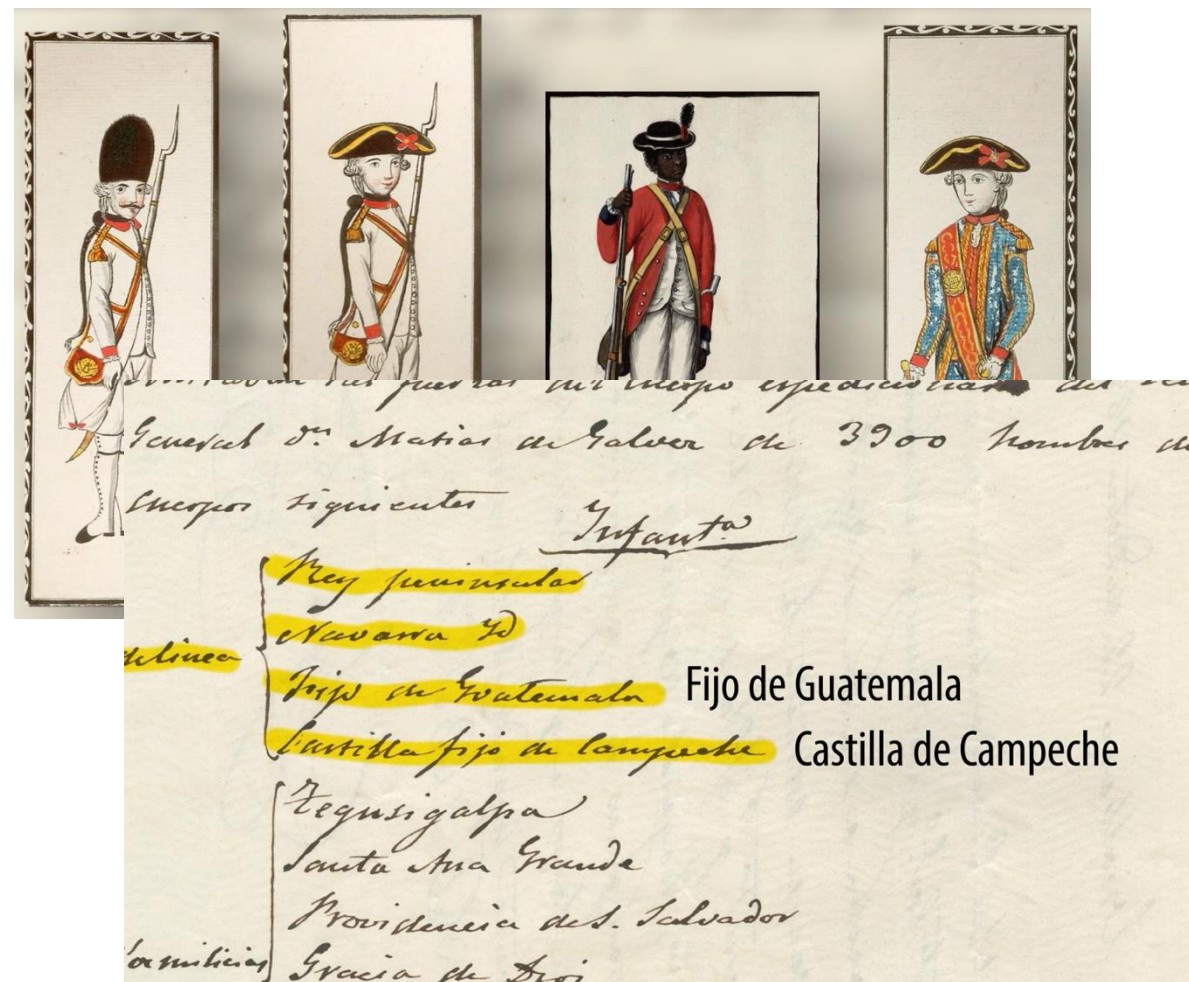 fuerzas del cuerpo expedicionario del
General dⁿ Matias de Galvez de 3900 hombres de
cuerpos siguientes
Infantª
Rey peninsular
Navarra Yd
de linea
Fijo de Guatemala Fijo de Guatemala
Castilla fijo de Campeche Castilla de Campeche
Tegusigalpa
Santa Ana Grande
Providencia de S. Salvador
milicias
Gracia de Dios